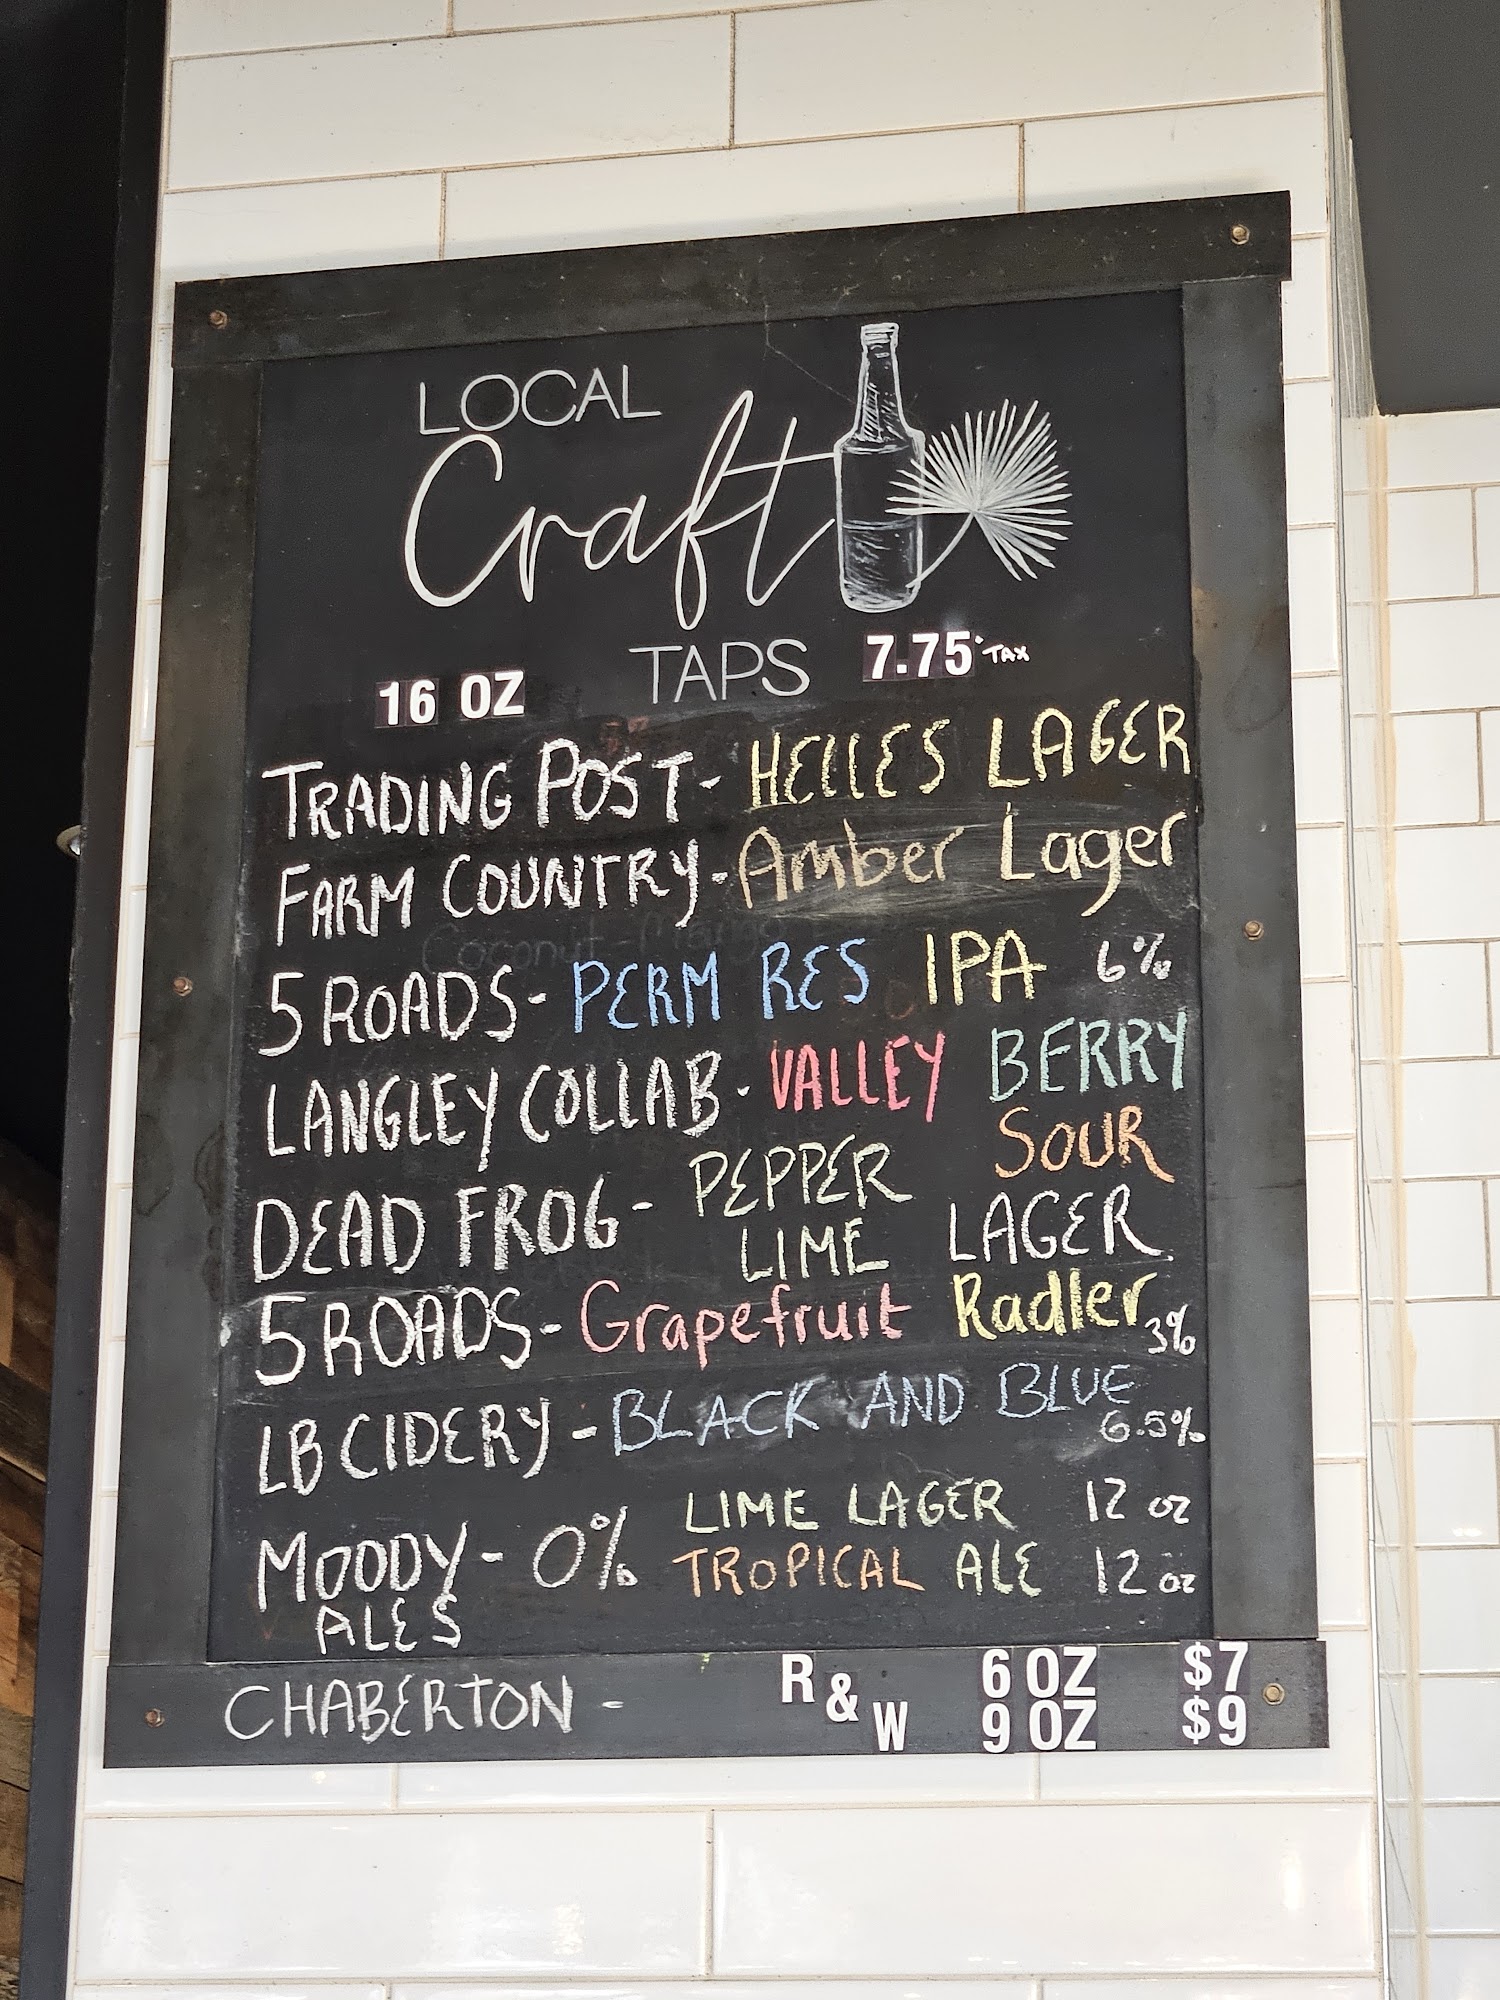 LOCAL
Craft
TAPS 7.75+TAX
16 OZ
TRADING POST - HELLES LAGER
FARM COUNTRY - Amber Lager
5 ROADS - PERM RES IPA 6%
LANGLEY COLLAB - VALLEY BERRY
SOUR
DEAD FROG - PEPPER
LIME LAGER
5 ROADS - Grapefruit Radler 3%
LB CIDERY - BLACK AND BLUE
6.5%
MOODY - 0% LIME LAGER 12 oz
ALES TROPICAL ALE 12 oz
CHABERTON - R & W 6 OZ $7
9 OZ $9